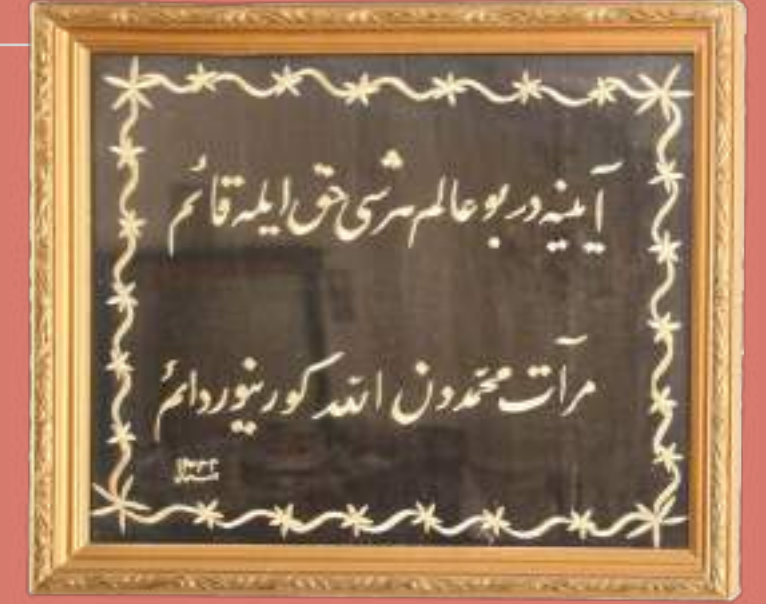 آیینه در بو عالم هر شی حق ایله قائم
مرآت محمددن الله کورینور دائم